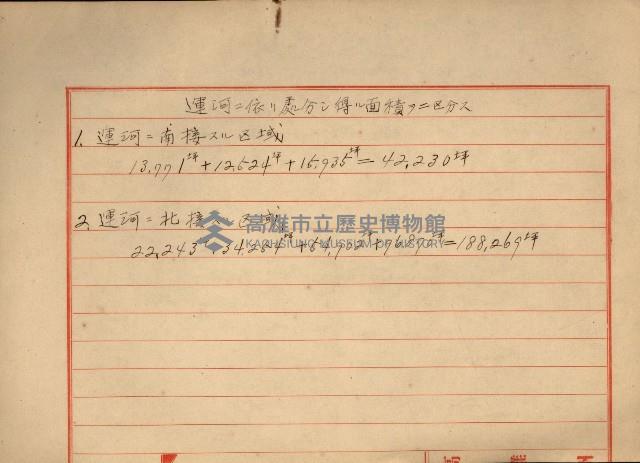 運河ニ依リ處分シ得ル面積ヲ二区分ス
1. 運河ニ南接スル区域
13,771坪+12,524坪+15,935坪=42,230坪
2. 運河ニ北接スル区域
高雄市立歷史博物館
KAOHSIUNG MUSEUM OF HISTORY
22,243 +34,284坪+ =188,269坪